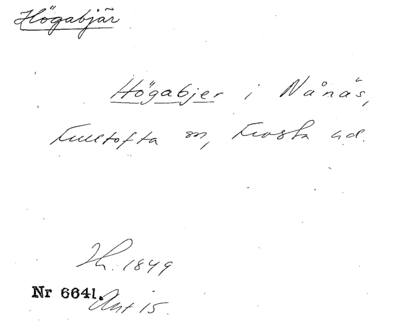 Högabjär
Högabjer i Nånäs,
Fulltofta sn, Frosta hd.
Jh. 1849
Nr 6641. Ant 15.